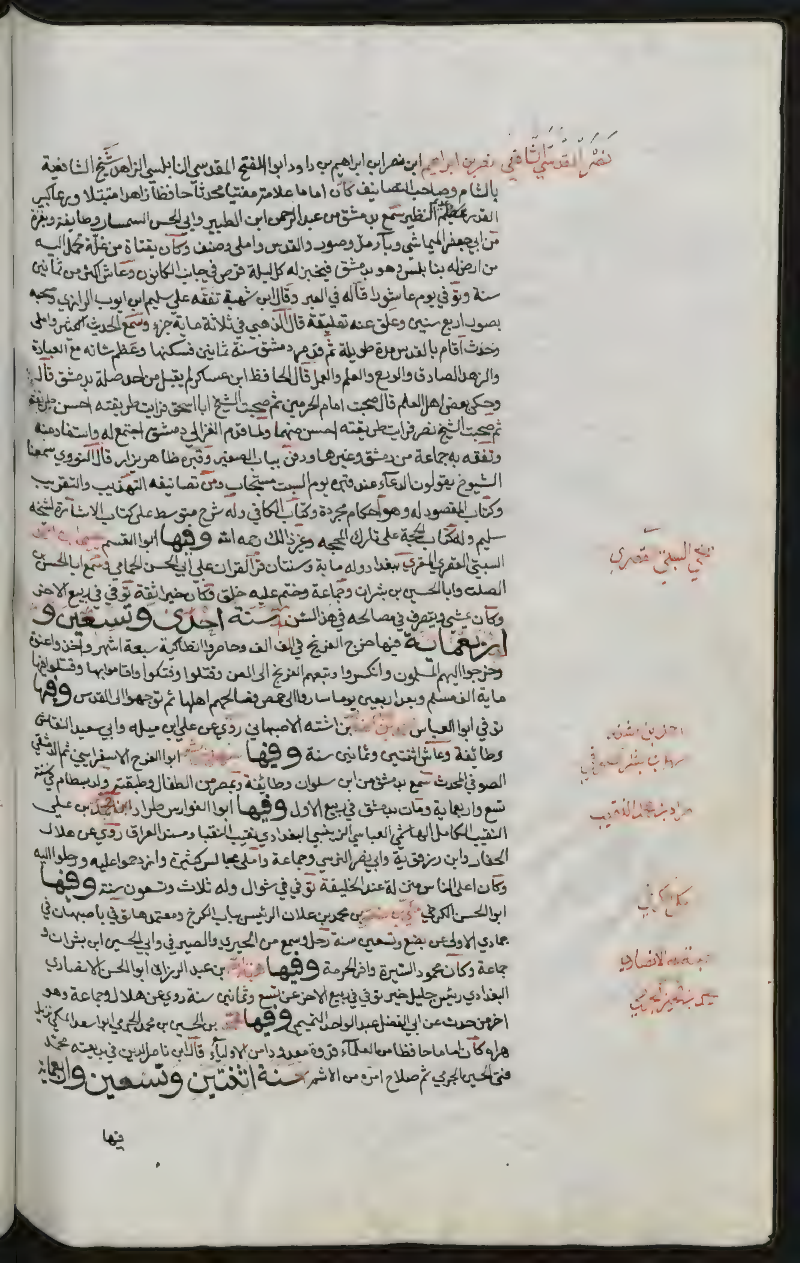 نصر المقدسي الشافعي
نصر بن ابراهيم ابن نصر ابن ابراهيم بن داود ابوا الفتح المقدسي النابلسي الزاهد شيخ الشافعية
بالشام وصاحب التصانيف كان اماما علامة مفتيا محدثا حافظا زاهدا متبتلا ورعا كبير
القدر عظيم النظير سمع بدمشق من عبد الرحمن ابن الطبيز وابي الحسن السمسار وطائفة وبغزة
من ابي جعفر الميماشي وبآمد وصور والقدس واملى وصنف وكان يقتات من غلة تحمل اليه
من ارض له بنابلس وهو بدمشق فيخبز له كل ليلة قرص في جانب الكانون وعاش اكثر من ثمانين
سنة وتوفي يوم عاشورا قاله في العبر وقال ابن شهبة تفقه على سليم ابن ايوب الرازي وصحبه
بصور اربع سنين وعلق عنه تعليقة قال الذهبي في ثلاثة ماية جزو وسمع الحديث الكثير واملى
وحدث اقام بالقدس مدة طويلة ثم قدم دمشق سنة ثمانين فسكنها وعظم شانه مع العبادة
والزهد الصادق والورع والعلم والعمل قال الحافظ ابن عساكر لم يقبل من احد صلة بدمشق قال
وحكى بعض اهل العلم قال صحبت امام الحرمين ثم صحبت الشيخ ابا اسحق فرايت طريقته احسن طريقة
ثم صحبت الشيخ نصر فرايت طريقته احسن منهما ولما قدم الغزالي دمشق اجتمع به واستفاد منه
وتفقه به جماعة من دمشق وغيرها ودفن بباب الصغير وقبره ظاهر يزار قال النووي سمعنا
الشيوخ يقولون الدعاء عند قبره يوم السبت مستجاب ومن تصانيفه التهذيب والتقريب
وكتاب المقصود له وهو احكام مجردة وكتاب الكافي وله شرح متوسط على كتاب الاشارة لشيخه
سليم وله كتاب الحجة على تارك المحجة وغير ذلك رحمه الله وفيها ابوا القسم يحيى ابن احمد
السبتي القصري المقري ببغداد وله ماية وسنتان قرأ القران على ابي الحسن الحمامي وسمع ابا الحسن بن
الصلت وابا الحسين بن بشران وجماعة وختم عليه خلق وكان خيرا ثقة توفي في ربيع الاخر
وكان يمشي ويتصرف في مصالحه في هذا السن سنة احدى وتسعين و
اربعماية فيها خرج الفرنج في الف الف وحاصروا انطاكية سبعة اشهر واخذ واعنوة
وخرجوا اليهم المسلمون وانكسروا وتبعهم الفرنج الى المعرة وقتلوا وفتكوا واقاموا بها وقتلوا فيها
ماية الف مسلم وبعد اربعين يوما ساروا الى حمص فصالحهم اهلها ثم توجهوا الى القدس وفيها
توفي ابوا العباس احمد بن اشته الاصبهاني روى عن علي ابن ميله وابي سعيد النقاش
وطائفة وعاش اثنتين وثمانين سنة وفيها سهل بن بشر ابوا الفرج الاسفرايني ثم الدمشقي
الصوفي المحدث سمع بدمشق من ابن سلوان وطائفة وبمصر من الطفال وطبقته ولد ببسطام في سنة
تسع واربعماية ومات بدمشق في ربيع الاول وفيها ابوا الفوارس طراد ابن محمد بن علي
النقيب الكامل الهاشمي العباسي الزينبي البغدادي نقيب النقبا ومسند العراق روى عن هلال
الحفار وابن رزقوية وابي نصر النرسي وجماعة واملى مجالس كثيرة وازدحموا عليه ورحلوا اليه
وكان اعلى الناس منزلة عند الخليفة توفي في شوال وله ثلاث وتسعون سنة وفيها
ابوا الحسن الكرجي مكي بن منصور بن محمد بن علان الرئيس بباب الكرج ومعتمدها توفي باصبهان في
جمادي الاولى عن بضع وتسعين سنة رحل وسمع من الحيري والصيرفي وابي الحسين ابن بشران و
جماعة وكان محمود السيرة وافر الحرمة وفيها هبة الله بن عبد الرزاق ابوا الحسن الانصاري
البغدادي رئيس جليل خير توفي في ربيع الاخر عن تسع وثمانين سنة روى عن هلال وجماعة وهو
اخر من حدث عن ابي الفضل عبد الواحد التميمي وفيها محمد بن الحسين بن محمد الجرمي ابوا سعد المكي نزيل
هراه كان اماما حافظا من العلماء قدوة معدودا من الاولياء قال ابن ناصر الدين في بديعته محمد
فتى الحسين الجرمي ثم صلاح امره من الاشم سنة اثنتين وتسعين واربعماية
فيها
يحيى السبتي قصري
احمد بن اشته
سهل بن بشر الصوفي
طراد بن محمد النقيب
مكي الكرجي
هبة الله الانصاري